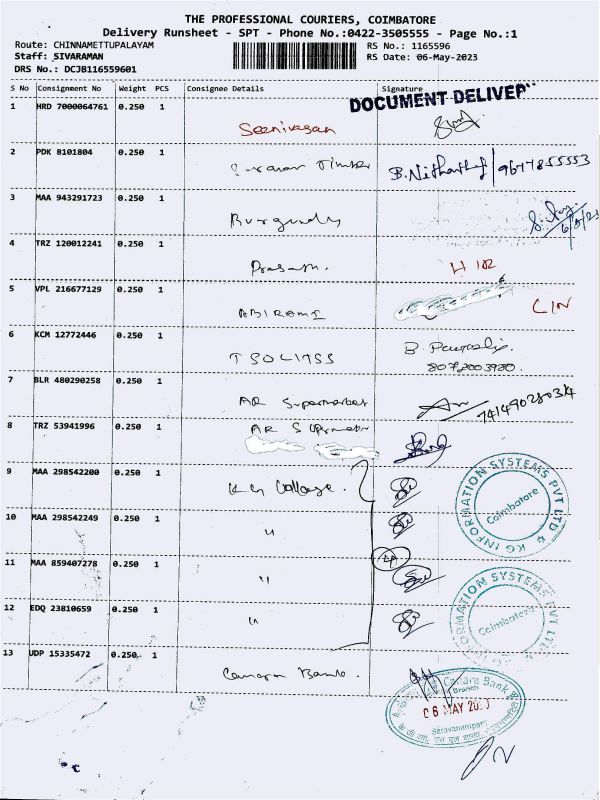 THE PROFESSIONAL COURIERS, COIMBATORE
Delivery Runsheet - SPT - Phone No.:0422-3505555 - Page No.:1
Route: CHINNAMETTUPALAYAM RS No.: 1165596
Staff: SIVARAMAN RS Date: 06-May-2023
DRS No.: DCJB116559601
S No Consignment No Weight PCS Consignee Details Signature
DOCUMENT DELIVER
1 HRD 7000064761 0.250 1
Seenivasan
2 PDK 8101804 0.250 1
Timber 9677855553
3 MAA 943291723 0.250 1
Burgundy
4 TRZ 120012241 0.250 1
Prasath.
5 VPL 216677129 0.250 1
ABIRAMI
6 KCM 12772446 0.250 1
B.
8072003980.
7 BLR 480290258 0.250 1
AR Supermarket
8 TRZ 53941996 0.250 1
AR
9 MAA 298542200 0.250 1
KG College.
10 MAA 298542249 0.250 1
"
11 MAA 859407278 0.250 1
"
12 EDQ 23810659 0.250 1
"
13 UDP 15335472 0.250 1
Canara Bank.
KG INFORMATION SYSTEMS PVT LTD
Coimbatore
INFORMATION SYSTEMS PVT LTD
Coimbatore
Canara Bank
Branch
06 MAY 20
Saravanampatti